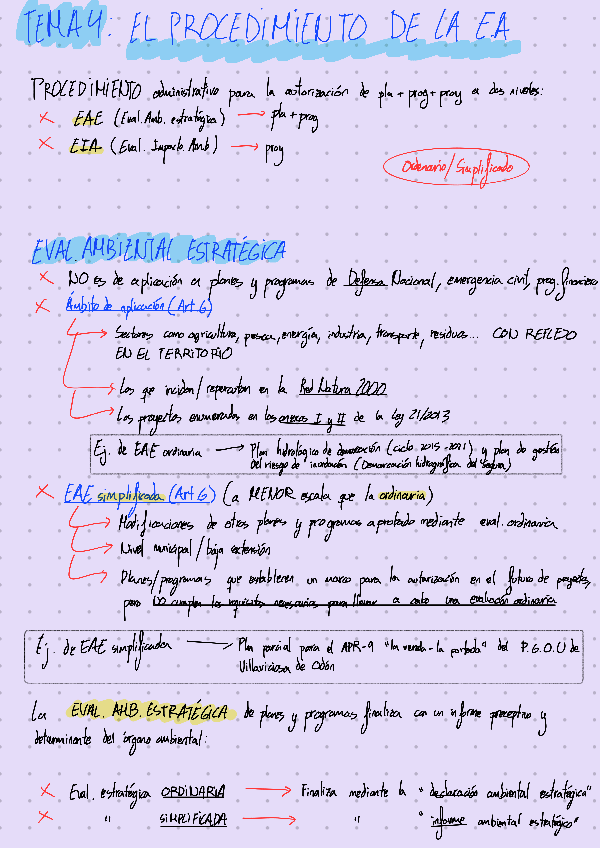 TEMA 4: EL PROCEDIMIENTO DE LA E.A
PROCEDIMIENTO administrativo para la autorización de pla + prog + proy a dos niveles:
× EAE (Eval. Amb. estratégica) → pla + prog
× EIA (Eval. Impacto. Amb) → proy
Ordinario/Simplificado
EVAL. AMBIENTAL ESTRATÉGICA
× NO es de aplicación a planes y programas de Defensa Nacional, emergencia civil, prog. financiero
× Ámbito de aplicación (Art 6)
→ Sectores como agricultura, pesca, energía, industria, transporte, residuos... CON REFLEJO
EN EL TERRITORIO
→ Los que incidan/repercutan en la Red Natura 2000
→ Los proyectos enumerados en los anexos I y II de la Ley 21/2013
Ej. de EAE ordinaria → Plan hidrológico de demarcación (ciclo 2015-2021) y plan de gestión
del riesgo de inundación (Demarcación hidrográfica del Segura)
× EAE simplificada (Art 6) (a MENOR escala que la ordinaria)
→ Modificaciones de otros planes y programas aprobado mediante eval. ordinaria
→ Nivel municipal/baja extensión
→ Planes/programas que establecen un marco para la autorización en el futuro de proyectos,
pero NO cumplen los requisitos necesarios para llevar a cabo una evaluación ordinaria
Ej. de EAE simplificada → Plan parcial para el APR-9 "la venda-la portada" del P.G.O.U de
Villaviciosa de Odón
La EVAL. AMB. ESTRATÉGICA de planes y programas finaliza con un informe preceptivo y
determinante del órgano ambiental:
× Eval. estratégica ORDINARIA → Finaliza mediante la "declaración ambiental estratégica"
× " SIMPLIFICADA → " "informe ambiental estratégico"